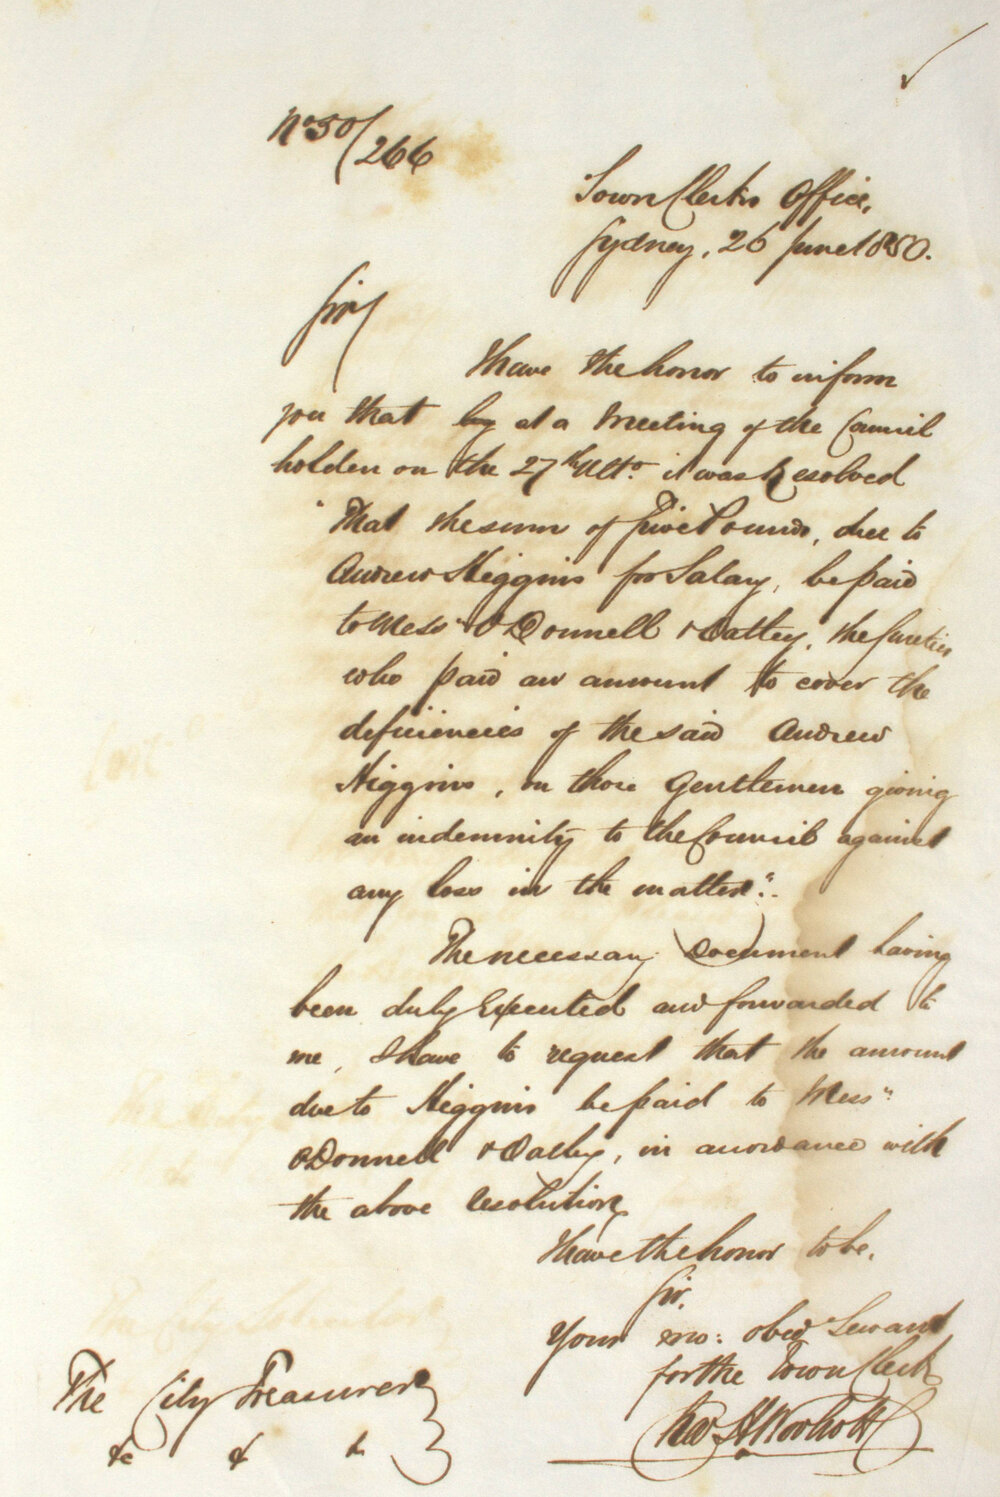 No 50/266
Town Clerks Office,
Sydney, 26 June 1850.
Sir
I have the honor to inform
you that by at a Meeting of the Council
holden on the 27th Ulto. it was Resolved
"That the sum of Five Pounds, due to
Andrew Higgins for Salary, be paid
to Messrs O'Donnell & Dalley, the sureties
who paid an amount to cover the
deficiencies of the said Andrew
Higgins, on those Gentlemen giving
an indemnity to the Council against
any loss in the matter".
The necessary Document having
been duly Executed and forwarded to
me, I have to request that the amount
due to Higgins be paid to Messrs
O'Donnell & Dalley, in accordance with
the above resolution
I have the honor to be,
Sir,
Your mo: obed Servant
for the Town Clerk
The City Treasurer
&c & &